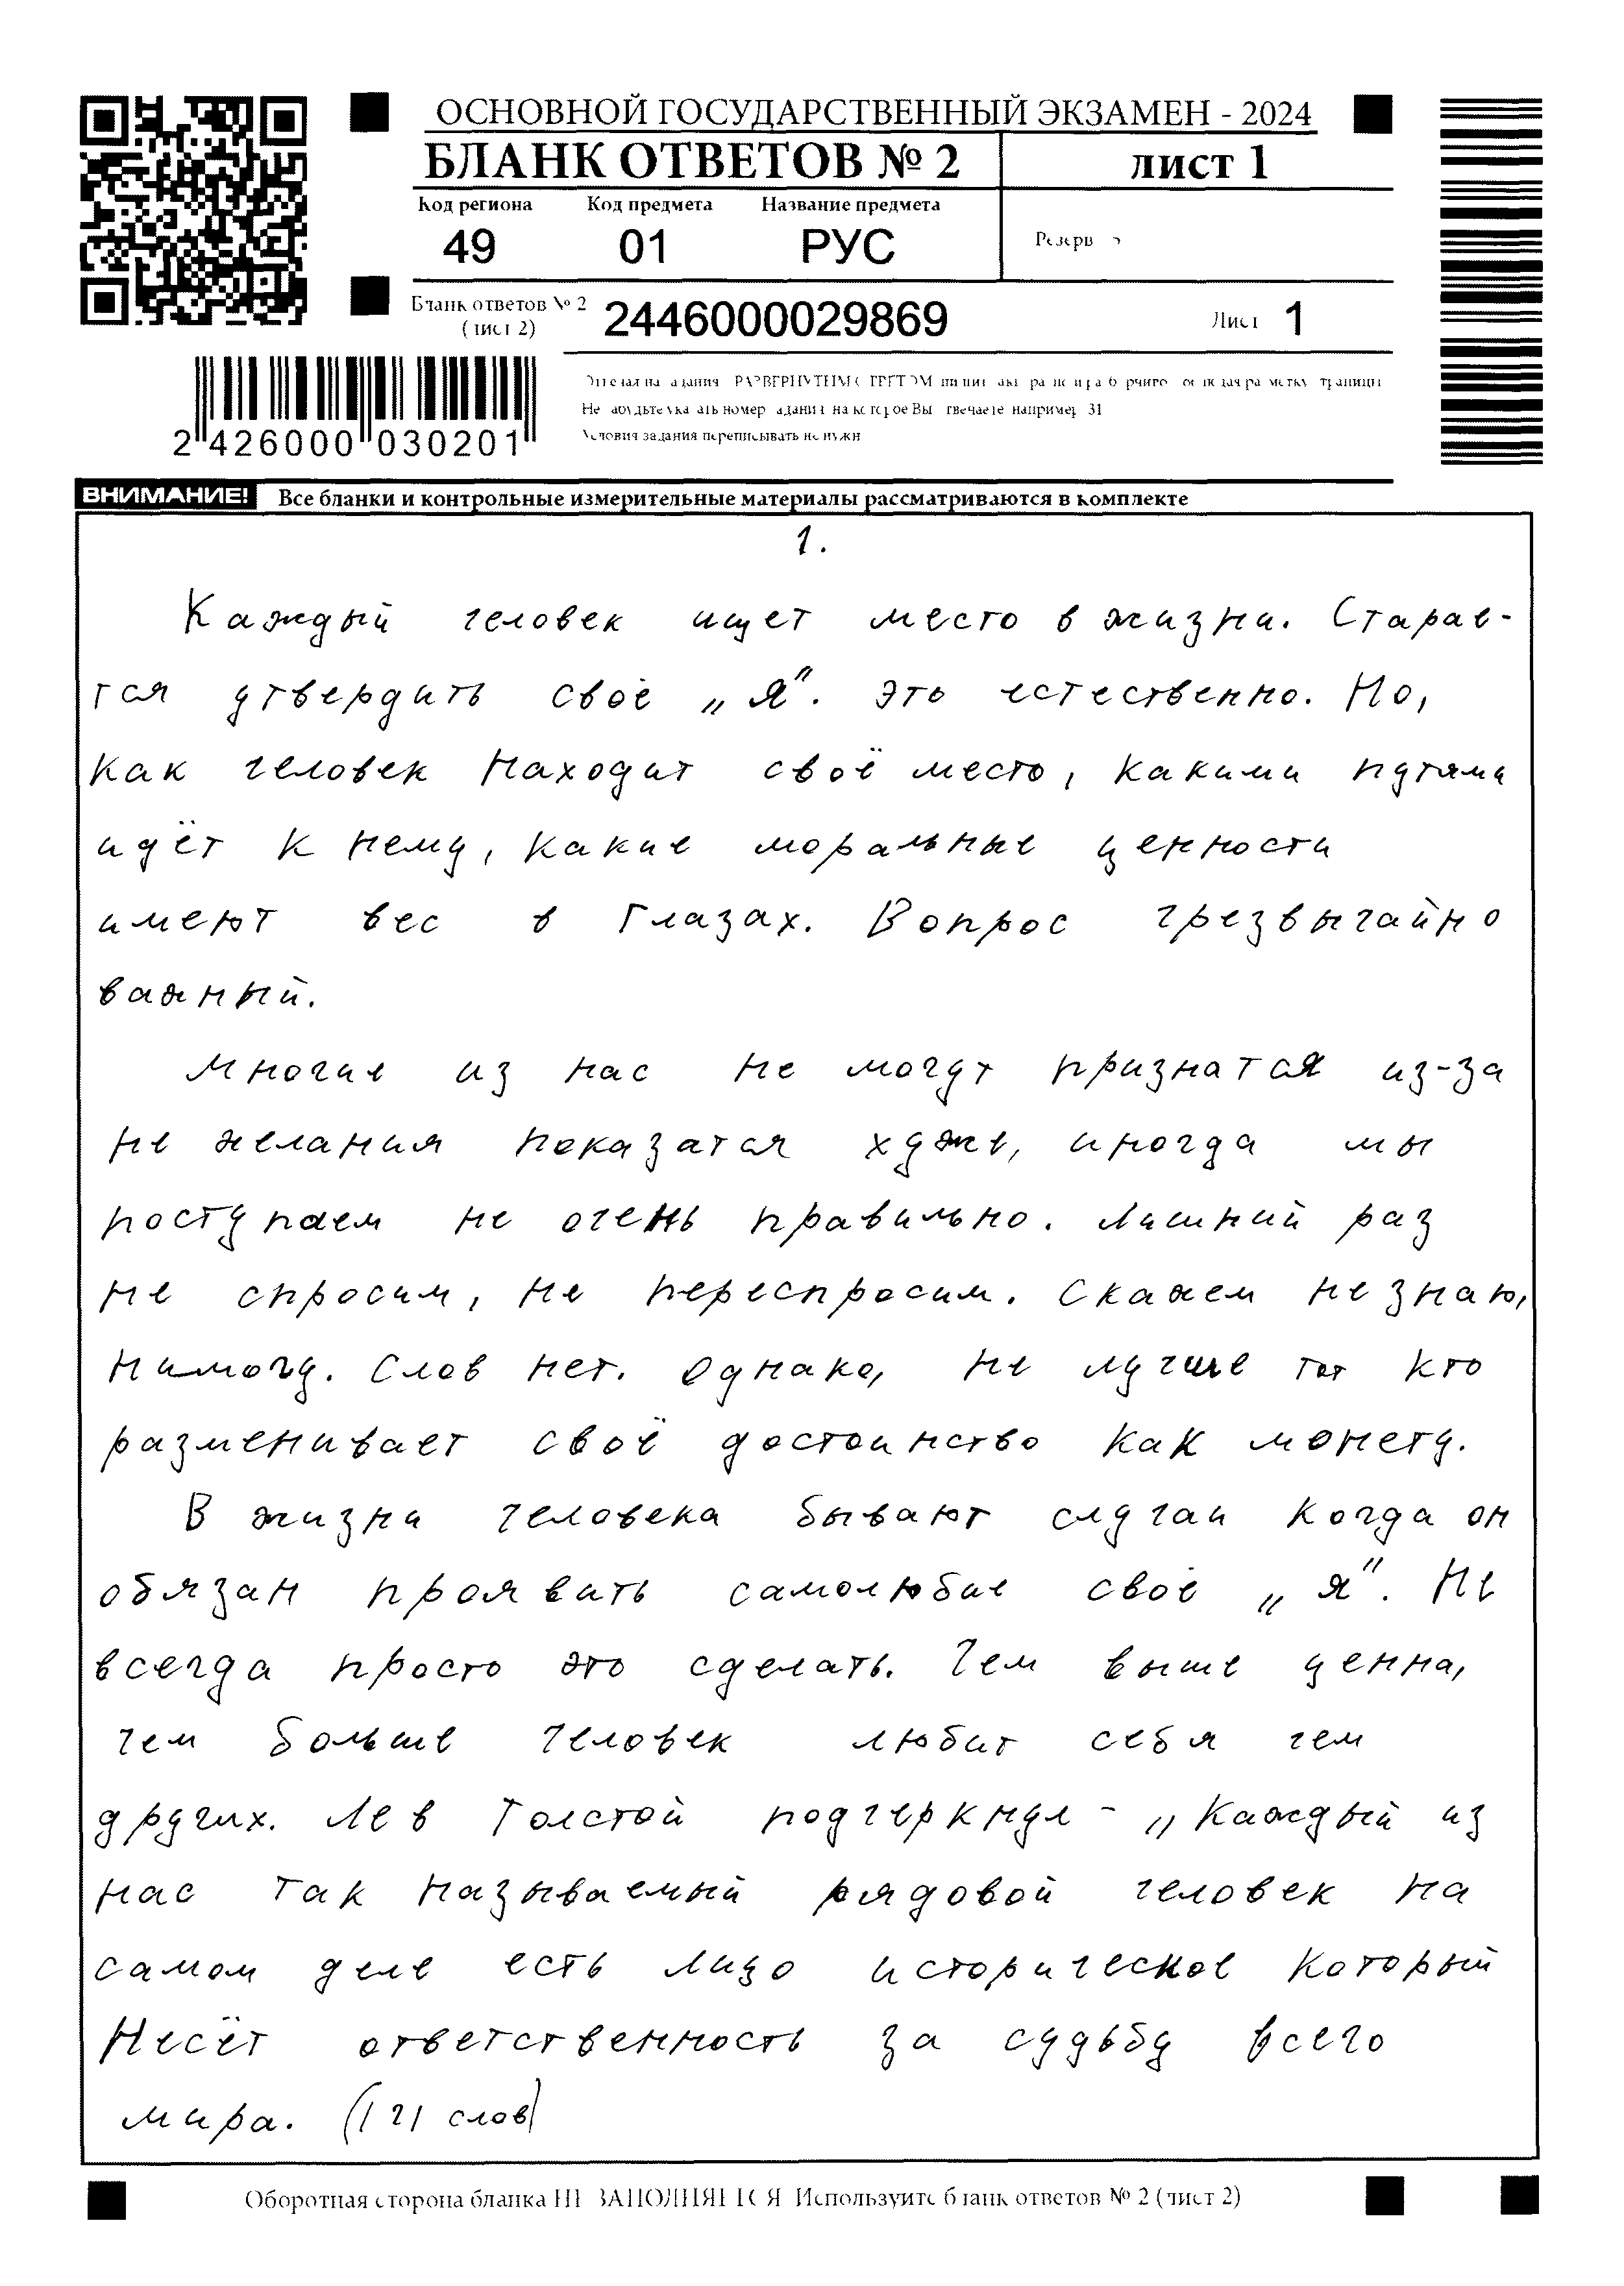 ОСНОВНОЙ ГОСУДАРСТВЕННЫЙ ЭКЗАМЕН - 2024
БЛАНК ОТВЕТОВ № 2 лист 1
Код региона Код предмета Название предмета
49 01 РУС Резерв
Бланк ответов № 2
(лист 2) 2446000029869 Лист 1
2 426000 030201
Условия задания переписывать не нужн
ВНИМАНИЕ! Все бланки и контрольные измерительные материалы рассматриваются в комплекте
1.
Каждый человек ищет место в жизни. Старае-
тся утвердить своё „Я". Это естественно. Но,
как человек находит своё место, какими путями
идёт к нему, какие моральные ценности
имеют вес в глазах. Вопрос чрезвычайно
важный.
Многие из нас не могут признатся из-за
не желания показатся хуже, иногда мы
поступаем не очень правильно. Лишний раз
не спросим, не переспросим. Скажем не знаю,
нимогу. Слов нет. Однако, не лучше тот кто
разменивает своё достоинство как монету.
В жизни человека бывают случаи когда он
обязан проявить самолюбие своё „я". Не
всегда просто это сделать. Чем выше ценна,
чем больше человек любит себя чем
других. Лев Толстой подчеркнул - „Каждый из
нас так называемый рядовой человек на
самом деле есть лицо историческое который
Несёт ответственность за судьбу всего
мира. (121 слов)
Оборотная сторона бланка НЕ ЗАПОЛНЯЕТСЯ Используйте бланк ответов № 2 (лист 2)